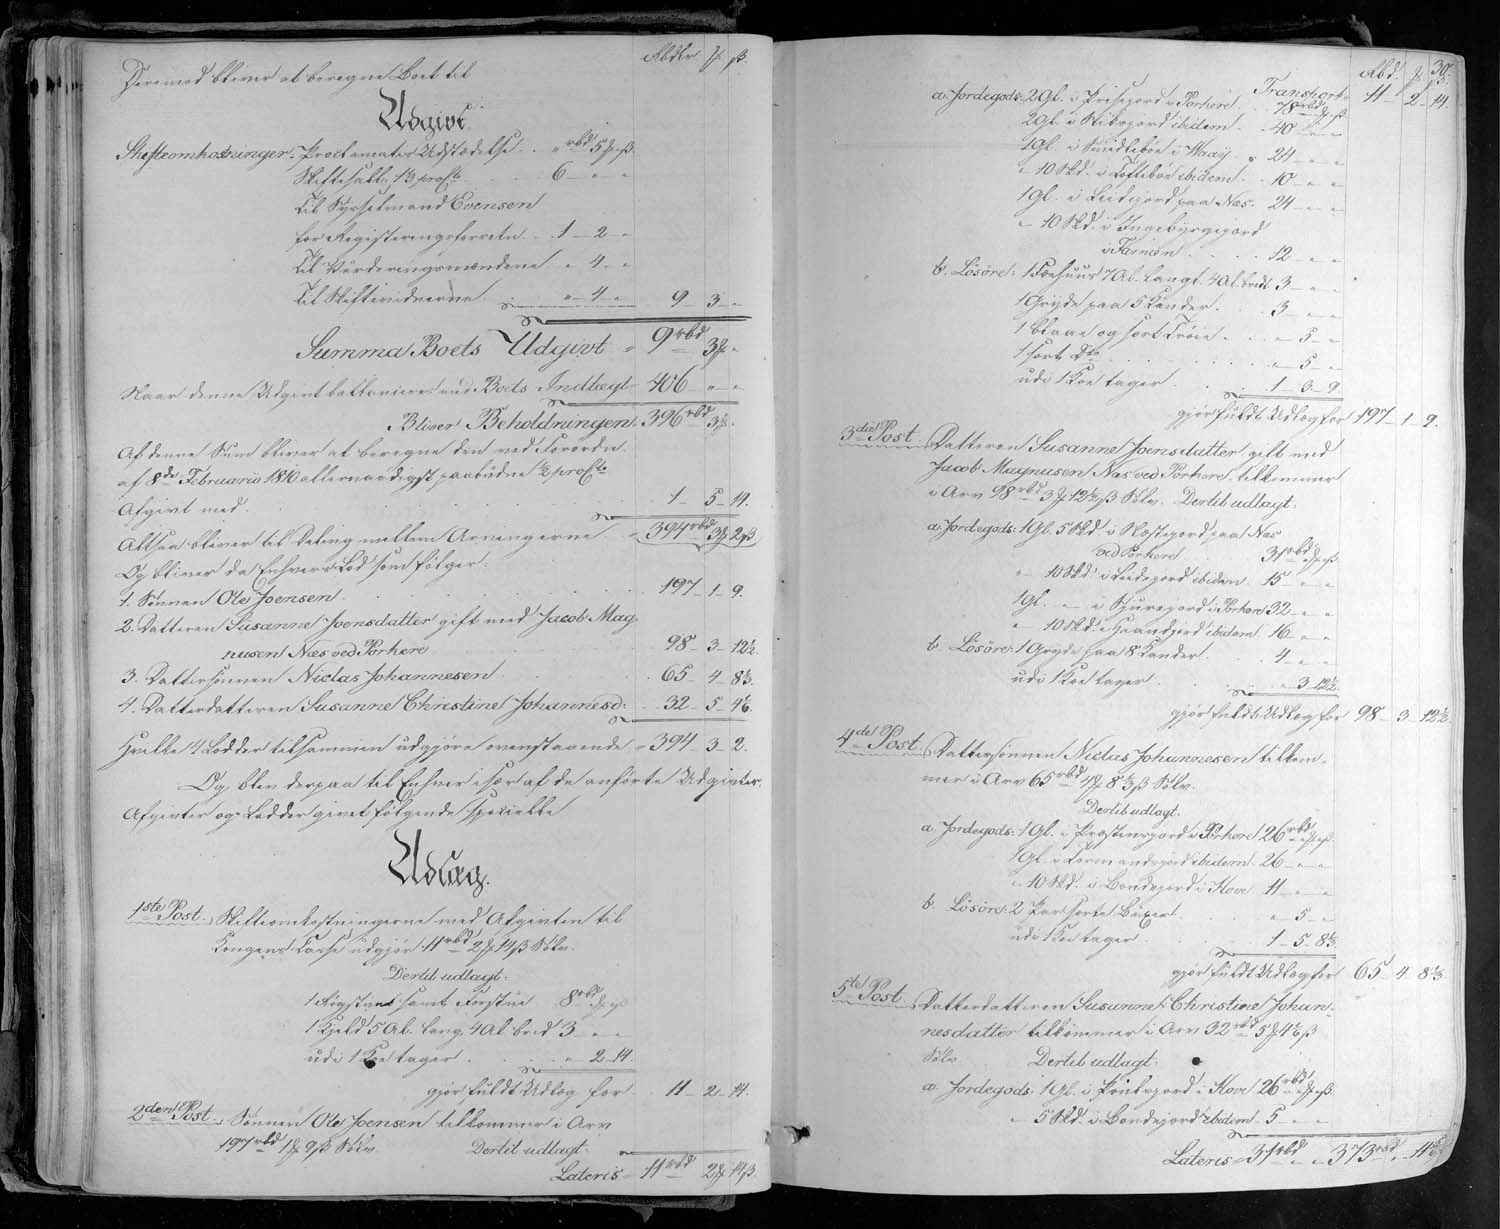 Rbdlr ℳ ß.
Deremod bliver at beregne Boet til
Udgivt
Skifteomkostninger: Proclamatas Udstædelse . . „ rbd 5 ℳ „ ß.
Skiftesall. 1⅓ profto 6 – „ – „
til Sysselmand Evensen
for Registeringsforretn. . 1 – 2 – „
til Vurderingsmændene „ – 4 – „
til Skifteindvarne . „ – 4 – „ 9 – 3 – „
Summa Boets Udgivt „ 9 rbd 3 ℳ „
Naar denne Udgivt balanceres mod Boets Indtægt 406 – „ – „
Bliver Beholdningen 396 rbd 3 ℳ „
Af denne Sum bliver at beregne den ved Forordn.
af 8de Februario 1810 allernaadigst paabudne ½ profto
Afgivt med . . . . 1 – 5 – 14.
Altsaa bliver til Deling mellem Arvingerne „ 394 rbd 3 ℳ 2 ß
Og bliver da Enhvers Lod som følger:
1. Sønnen Ole Joensen . . . 197 – 1 – 9.
2. Datteren Susanne Joensdatter gift med Jacob Mag-
nusen Næs ved Porkere 98 – 3 – 12½.
3. Dattersønnen Niclas Johannesen . . 65 – 4 – 8⅓.
4. Datterdatteren Susanne Christine Johannesd: . 32 – 5 – 4⅙.
Hvilke 4 Lodder tilsammen udgjøre ovenstaaende „ 394 – 3 – 2.
Og blev derpaa til Enhver især af de anførte Udgivter,
Afgivter og Lodder givet følgende specielle
Udlæg.
1ste Post. Skifteomkostningerne med Afgivten til
Kongens Casse udgjør 11 rbd 2 ℳ 14 ß Sølv.
Dertil udlagt:
1 Røgstue samt Forstue 8 rbd „ ℳ „ ß
1 Kjeld 5 Al. lang, 4 Al. bred 3 – „ – „
udi 1 Koe tager . . . „ – 2 – 14.
gjør fuldt Udlæg for . 11 – 2 – 14.
2den Post. Sønnen Ole Joensen tilkommer i Arv
197 rbd 1 ℳ 9 ß Sølv. Dertil udlagt:
Lateris „ 11 rbd 2 ℳ 14 ß.
30.
Rbd. ℳ ß.
Transport 11 – 2 – 14.
a. Jordegods: 2 Gl. i Prisegord i Porkere . 78 rbd „ ℳ „ ß
2 Gl. i Nibegord ibidem . 40 – „ – „
1 Gl. i Smidtebøe i Waag . „ 24 – „ – „
„ 10 Skd. i Toftebøe ibidem . . 10 – „ – „
1 Gl. i Leidegord paa Næs . 24 – „ – „
„ 10 Skd. i Ingebyrgegord
i Famien . . . . 12 – „ – „
b. Løsøre: 1 Foehuus 7 Al. langt, 4 Al. bredt 3 – „ – „
1 Gryde paa 5 Kander . . 3 – „ – „
1 blaae og sort Trøie . . „ – 5 – „
1 sort Do . . . . „ – 5 – „
udi 1 Koe tager . . . 1 – 3 – 9
gjør fuldt Udlæg for 197 – 1 – 9.
3die Post. Datteren Susanne Joensdatter gift med
Jacob Magnusen Næs ved Porkere tilkommer
i Arv 98 rbd 3 ℳ 12½ ß Sølv. Dertil udlagt:
a. Jordegods: 1 Gl. 5 Skd. i Næstegord paa Næs
ved Porkere 31 rbd „ ℳ „ ß
„ 10 Skd. i Leidegord ibidem . 15 – „ – „
1 Gl. – „ – i Bjuregord i Porkere 32 – „ – „
„ 10 Skd. i Haandgord ibidem . 16 – „ – „
b. Løsøre: 1 Gryde paa 8 Kander . . 4 – „ – „
udi 1 Koe tager . . . „ – 3 – 12½.
gjør fuldt Udlæg for 98 – 3 – 12½.
4de Post. Dattersønnen Niclas Johannesen tilkom-
mer i Arv 65 rbd 4 ℳ 8⅓ ß Sølv.
Dertil udlagt:
a. Jordegods: 1 Gl. i Præstensgord i Porkere 26 rbd „ ℳ „ ß.
1 Gl. i Formandsgord ibidem . 26 – „ – „
„ 10 Skd. i Bondegord i Hove 11 – „ – „
b. Løsøre: 2 Par sorte Buxer . . „ – 5 – „
udi 1 Koe tager . . . 1 – 5 – 8⅓.
gjør fuldt Udlæg for 65 – 4 – 8⅓.
5te Post. Datterdatteren Susanne Christine Johan-
nesdatter tilkommer i Arv 32 rbd 5 ℳ 4⅙ ß
Sølv. Dertil udlagt:
a. Jordegods: 1 Gl. i Prinkegord i Hove 26 rbd „ ℳ „ ß.
„ 5 Skd. i Bondegord ibidem 5 – „ – „
Lateris „ 31 rbd „ – „ 373 rbd „ – 11⅚